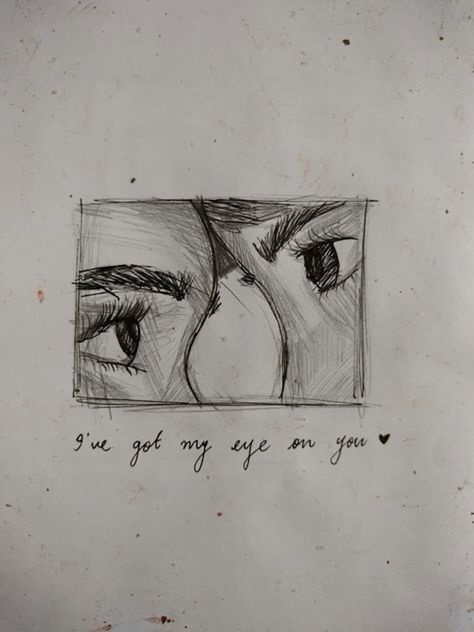 I've got my eye on you ♥